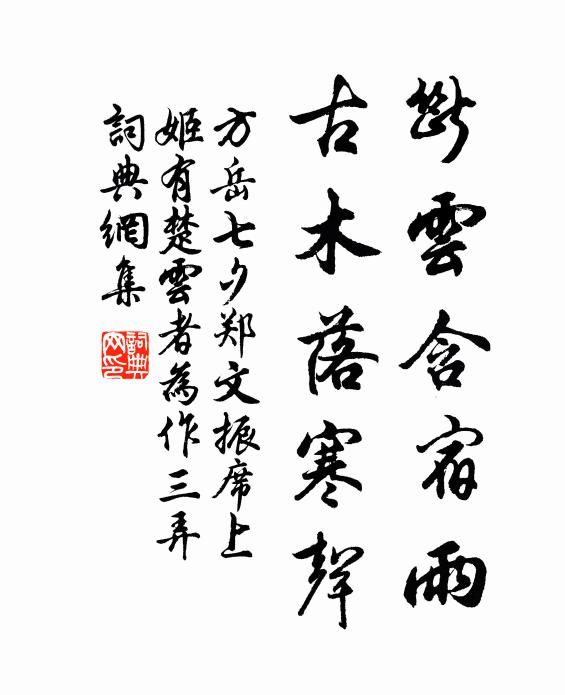 斷雲含宿雨
古木落寒聲
方岳七夕郑文振席上
姬有楚雲者為作三弄
詞典網集
詞典网印